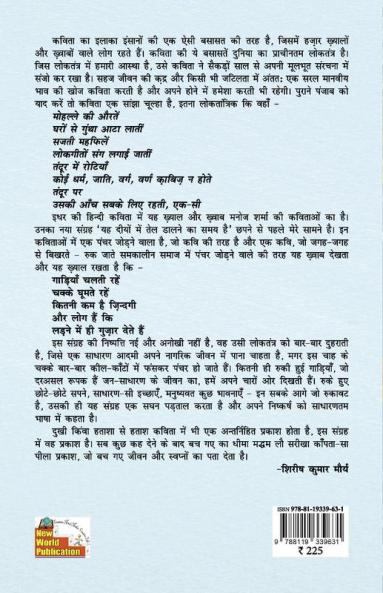 कविता का इलाका इंसानों की एक ऐसी बसासत की तरह है, जिसमें हज़ार ख्यालों
और ख्वाबों वाले लोग रहते हैं। कविता की ये बसासतें दुनिया का प्राचीनतम लोकतंत्र है।
जिस लोकतंत्र में हमारी आस्था है, उसे कविता ने सैकड़ों साल से अपनी मूलभूत संरचना में
संजो कर रखा है। सहज जीवन की क़द्र और किसी भी जटिलता में अंततः एक सरल मानवीय
भाव की खोज कविता करती है और अपने होने में हमेशा करती भी रहेगी। पुराने पंजाब को
याद करें तो कविता एक सांझा चूल्हा है, इतना लोकतांत्रिक कि वहाँ -
मोहल्ले की औरतें
घरों से गुंथा आटा लातीं
सजती महफिलें
लोकगीतों संग लगाई जातीं
तंदूर में रोटियाँ
कोई धर्म, जाति, वर्ग, वर्ण क़ाबिज़ न होते
तंदूर पर
उसकी आँच सबके लिए रहती, एक-सी
इधर की हिन्दी कविता में यह ख्याल और ख्वाब मनोज शर्मा की कविताओं का है।
उनका नया संग्रह 'यह दीयों में तेल डालने का समय है' छपने से पहले मेरे सामने है। इन
कविताओं में एक पंचर जोड़ने वाला है, जो कवि की तरह है और एक कवि, जो जगह-जगह
से बिखरते - रुक जाते समकालीन समाज में पंचर जोड़ने वाले की तरह यह ख्वाब देखता
और यह ख्याल रखता है कि -
गाड़ियाँ चलती रहें
चक्के घूमते रहें
कितनी कम है ज़िन्दगी
और लोग हैं कि
लड़ने में ही गुज़ार देते हैं
इस संग्रह की निष्पत्ति नई और अनोखी नहीं है, वह उसी लोकतंत्र को बार-बार दुहराती
है, जिसे एक साधारण आदमी अपने नागरिक जीवन में पाना चाहता है, मगर इस चाह के
चक्के बार-बार कील-काँटों में फंसकर पंचर हो जाते हैं। कितनी ही रुकी हुई गाड़ियाँ, जो
दरअसल रूपक हैं जन-साधारण के जीवन का, हमें अपने चारों ओर दिखती हैं। रुके हुए
छोटे-छोटे सपने, साधारण-सी इच्छाएँ, मनुष्यवत कुछ भावनाएँ - इन सबके आगे जो रुकावट
है, उसकी ही यह संग्रह एक सघन पड़ताल करता है और अपने निष्कर्ष को साधारणतम
भाषा में कहता है।
दुखी किंवा हताशा से हताश कविता में भी एक अन्तर्निहित प्रकाश होता है, इस संग्रह
में वह प्रकाश है। सब कुछ कह देने के बाद बच गए का धीमा मद्धम लौ सरीखा काँपता-सा
पीला प्रकाश, जो बच गए जीवन और स्वप्नों का पता देता है।
-शिरीष कुमार मौर्य
New
World
Publication
ISBN 978-81-19339-63-1
9 788119 339631
₹ 225